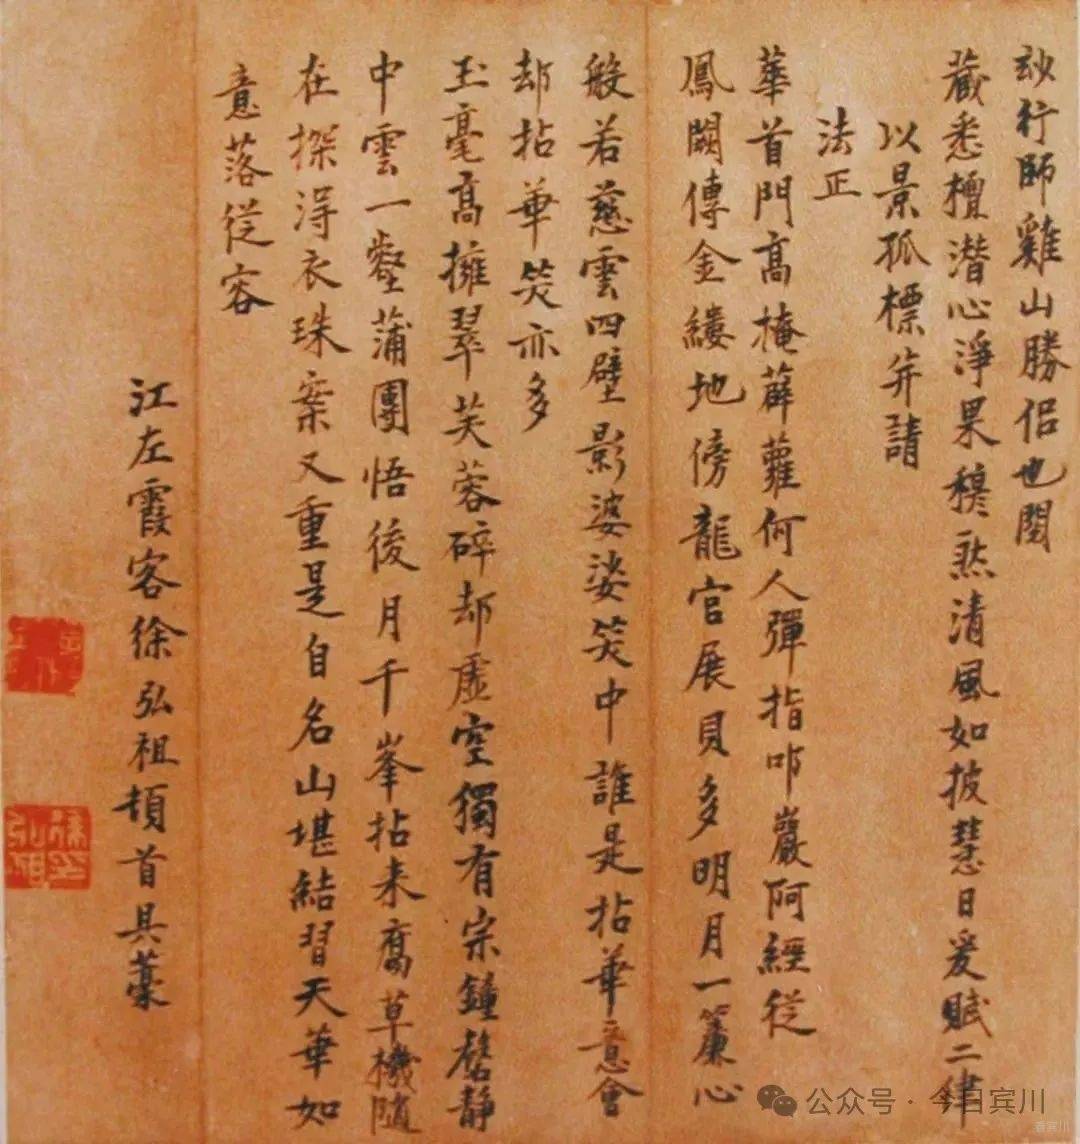 玅行師雞山勝侣也閱
藏悉檀潛心淨果穆然清風如披慧日爰賦二律
以景孤標并請
法正
華首門高掩薜蘿何人彈指叩巖阿經從
鳳闕傳金縷地傍龍宫展貝多明月一簾心
般若慈雲四壁影婆娑笑中誰是拈華意會
却拈華笑亦多
玉毫高擁翠芙蓉碎却虛空獨有宗鐘磬静
中雲一壑蒲團悟後月千峯拈来腐草機隨
在探淂衣珠案又重是自名山堪結習天華如
意落從容
江左霞客徐弘祖頓首具藁
公众号·今日宾川